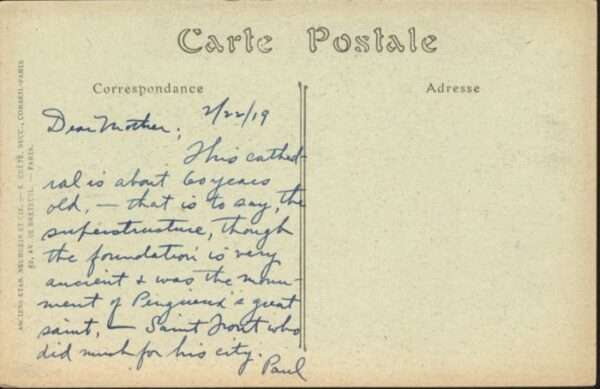 Carte Postale
Correspondance
Adresse
ANCIENS ETAB. NEURDEIN ET CIE. — E. CRÉTÉ, SUCC., CORBEIL-PARIS
52, AV. DE BRETEUIL. — PARIS.
2/22/19
Dear Mother;
This cathed-
ral is about 60 years
old, — that is to say, the
superstructure, though
the foundation is very
ancient & was the monu-
ment of Perigueux's great
saint, — Saint Front who
did much for his city.
Paul